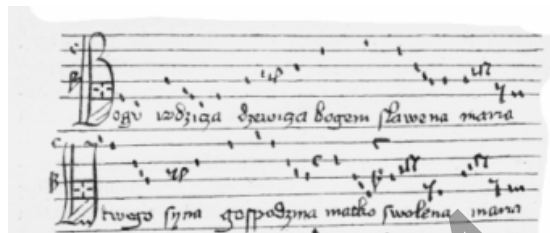 Bogu rodzicza dzewicza bogem slawena maria
twego syna gospodzina matko swolena maria